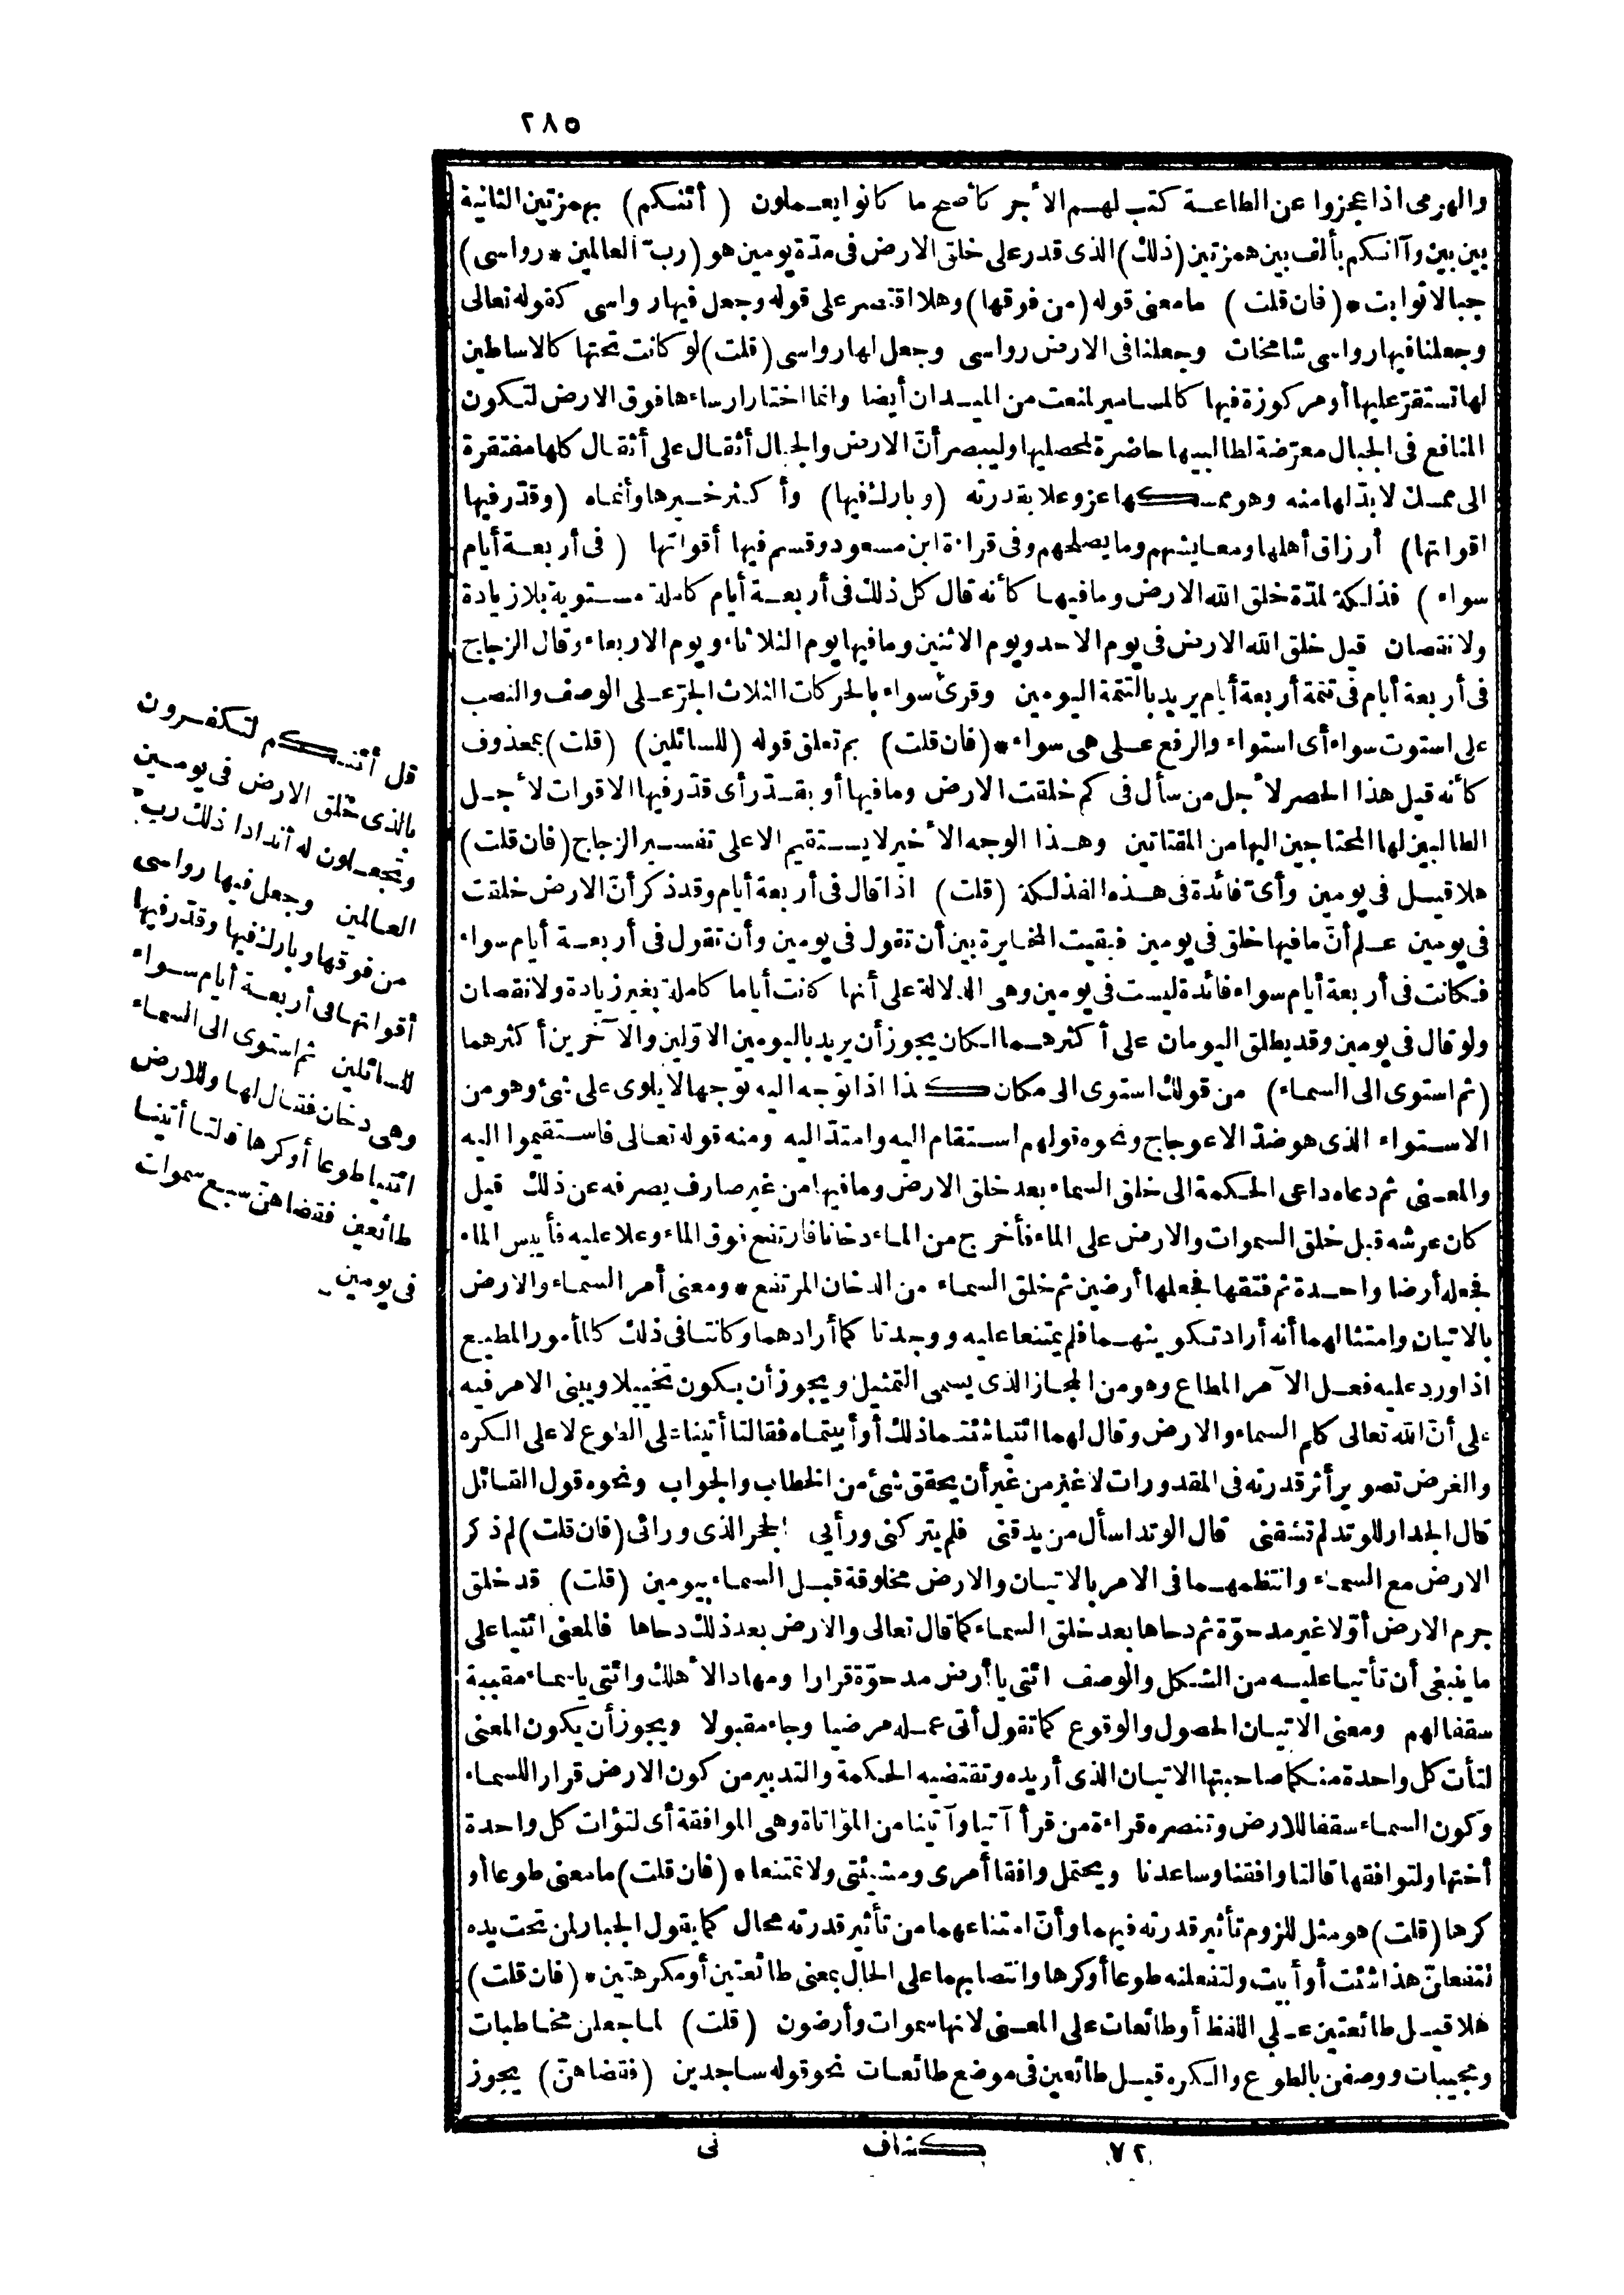 ٢٨٥
والهرمى اذا عجزوا عن الطاعة كتب لهم الأجر كأصح ما كانوا يعملون (أئنكم) بهمزتين الثانية
بين بين وآأنكم بألف بين همزتين (ذلك) الذى قدر على خلق الارض فى مدّة يومين هو (ربّ العالمين * رواسى)
جبالا ثوابت * (فان قلت) ما معنى قوله (من فوقها) وهلا اقتصر على قوله وجعل فيها رواسى كقوله تعالى
وجعلنا فيها رواسى شامخات وجعلنا فى الارض رواسى وجعل لها رواسى (قلت) لو كانت تحتها كالاساطين
لها تستقرّ عليها أو مركوزة فيها كالمسامير لمنعت من الميدان أيضا وانما اختار ارساءها فوق الارض لتكون
المنافع فى الجبال معرّضة لطالبيها حاضرة لمحصليها وليبصر أنّ الارض والجبال أثقال على أثقال كلها مفتقرة
الى ممسك لا بدّ لها منه وهو ممسكها عز وعلا بقدرته (وبارك فيها) وأكثر خيرها وأنماه (وقدّر فيها
اقواتها) أرزاق أهلها ومعايشهم وما يصلحهم وفى قراءة ابن مسعود وقسم فيها أقواتها (فى أربعة أيام
سواء) فذلكة لمدّة خلق الله الارض وما فيها كأنه قال كل ذلك فى أربعة أيام كاملة مستوية بلا زيادة
ولا نقصان قيل خلق الله الارض فى يوم الاحد ويوم الاثنين وما فيها يوم الثلاثاء ويوم الاربعاء وقال الزجاج
فى أربعة أيام فى تتمة أربعة أيام يريد بالتتمة اليومين وقرئ سواء بالحركات الثلاث الجرّ على الوصف والنصب
على استوت سواء أى استواء والرفع على هى سواء * (فان قلت) بم تعلق قوله (للسائلين) (قلت) بمحذوف
كأنه قيل هذا الحصر لأجل من سأل فى كم خلقت الارض وما فيها أو بقدّر أى قدّر فيها الاقوات لأجل
الطالبين لها المحتاجين اليها من المقتاتين وهذا الوجه الأخير لا يستقيم الا على تفسير الزجاج (فان قلت)
هلا قيل فى يومين وأىّ فائدة فى هذه الفذلكة (قلت) اذا قال فى أربعة أيام وقد ذكر أنّ الارض خلقت
فى يومين علم أنّ ما فيها خلق فى يومين فبقيت المخايرة بين أن تقول فى يومين وأن تقول فى أربعة أيام سواء
فكانت فى أربعة أيام سواء فائدة ليست فى يومين وهى الدلالة على أنها كانت أياما كاملة بغير زيادة ولا نقصان
ولو قال فى يومين وقد يطلق اليومان على أكثرهما لكان يجوز أن يريد باليومين الاوّلين والآخرين أكثرهما
(ثم استوى الى السماء) من قولك استوى الى مكان كذا اذا توجه اليه توجها لا يلوى على شئ وهو من
الاستواء الذى هو ضدّ الاعوجاج ونحوه قولهم استقام اليه وامتدّ اليه ومنه قوله تعالى فاستقيموا اليه
والمعنى ثم دعاه داعى الحكمة الى خلق السماء بعد خلق الارض وما فيها من غير صارف يصرفه عن ذلك قيل
كان عرشه قبل خلق السموات والارض على الماء فأخرج من الماء دخانا فارتفع فوق الماء وعلا عليه فأيبس الماء
فجعله أرضا واحدة ثم فتقها فجعلها أرضين ثم خلق السماء من الدخان المرتفع * ومعنى أمر السماء والارض
بالاتيان وامتثالهما أنه أراد تكوينهما فلم يمتنعا عليه ووجدتا كما أرادهما وكانتا فى ذلك كالمأمور المطيع
اذا ورد عليه فعل الآمر المطاع وهو من المجاز الذى يسمى التمثيل ويجوز أن يكون تخييلا ويبنى الامر فيه
على أنّ الله تعالى كلم السماء والارض وقال لهما ائتيا شئتما ذلك أو أبيتماه فقالتا أتينا على الطوع لا على الكره
والغرض تصوير أثر قدرته فى المقدورات لا غير من غير أن يحقق شئ من الخطاب والجواب ونحوه قول القائل
قال الجدار للوتد لم تشقنى قال الوتد اسأل من يدقنى فلم يتركنى ورأيى الحجر الذى ورائى (فان قلت) لم ذكر
الارض مع السماء وانتظمهما فى الامر بالاتيان والارض مخلوقة قبل السماء بيومين (قلت) قد خلق
جرم الارض أوّلا غير مدحوّة ثم دحاها بعد خلق السماء كما قال تعالى والارض بعد ذلك دحاها فالمعنى ائتيا على
ما ينبغى أن تأتيا عليه من الشكل والوصف ائتى يا أرض مدحوّة قرارا ومهادا لأهلك وائتى يا سماء مقببة
سقفا لهم ومعنى الاتيان الحصول والوقوع كما تقول أتى عمله مرضيا وجاء مقبولا ويجوز أن يكون المعنى
لتأت كل واحدة منكما صاحبتها الاتيان الذى أريده وتقتضيه الحكمة والتدبير من كون الارض قرارا للسماء
وكون السماء سقفا للارض وتنصره قراءة من قرأ آتيا وآتينا من المؤاتاة وهى الموافقة أى لتؤات كل واحدة
أختها ولتوافقها قالتا وافقنا وساعدنا ويحتمل وافقا أمرى ومشيئتى ولا تمتنعا * (فان قلت) ما معنى طوعا أو
كرها (قلت) هو مثل للزوم تأثير قدرته فيهما وأنّ امتناعهما من تأثير قدرته محال كما يقول الجبار لمن تحت يده
لتفعلنّ هذا شئت أو أبيت ولتفعلنه طوعا أو كرها وانتصابهما على الحال بمعنى طائعتين أو مكرهتين * (فان قلت)
هلا قيل طائعتين على اللفظ أو طائعات على المعنى لانها سموات وأرضون (قلت) لما جعلن مخاطبات
ومجيبات ووصفن بالطوع والكره قيل طائعين فى موضع طائعات نحو قوله ساجدين (فقضاهنّ) يجوز
قل أئنكم لتكفرون
بالذى خلق الارض فى يومين
وتجعلون له أندادا ذلك ربّ
العالمين وجعل فيها رواسى
من فوقها وبارك فيها وقدّر فيها
أقواتها فى أربعة أيام سواء
للسائلين ثم استوى الى السماء
وهى دخان فقال لها وللارض
ائتيا طوعا أو كرها قالتا أتينا
طائعين فقضاهنّ سبع سموات
فى يومين
٧٢ كشاف نى